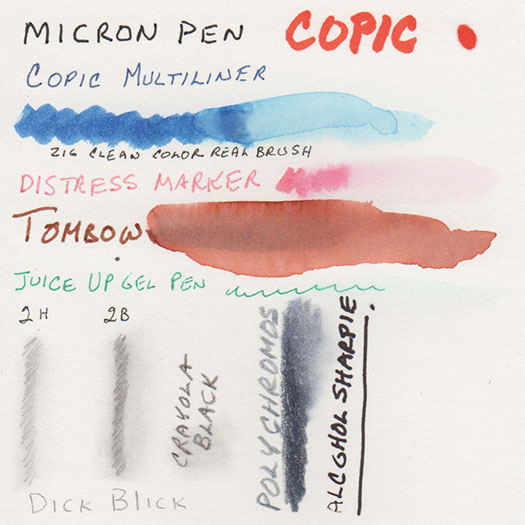 MICRON PEN COPIC
COPIC MULTILINER
ZIG CLEAN COLOR REAL BRUSH
DISTRESS MARKER
TOMBOW
JUICE UP GEL PEN
2H 2B
CRAYOLA
BLACK
POLYCHROMOS
ALCOHOL SHARPIE
DICK BLICK